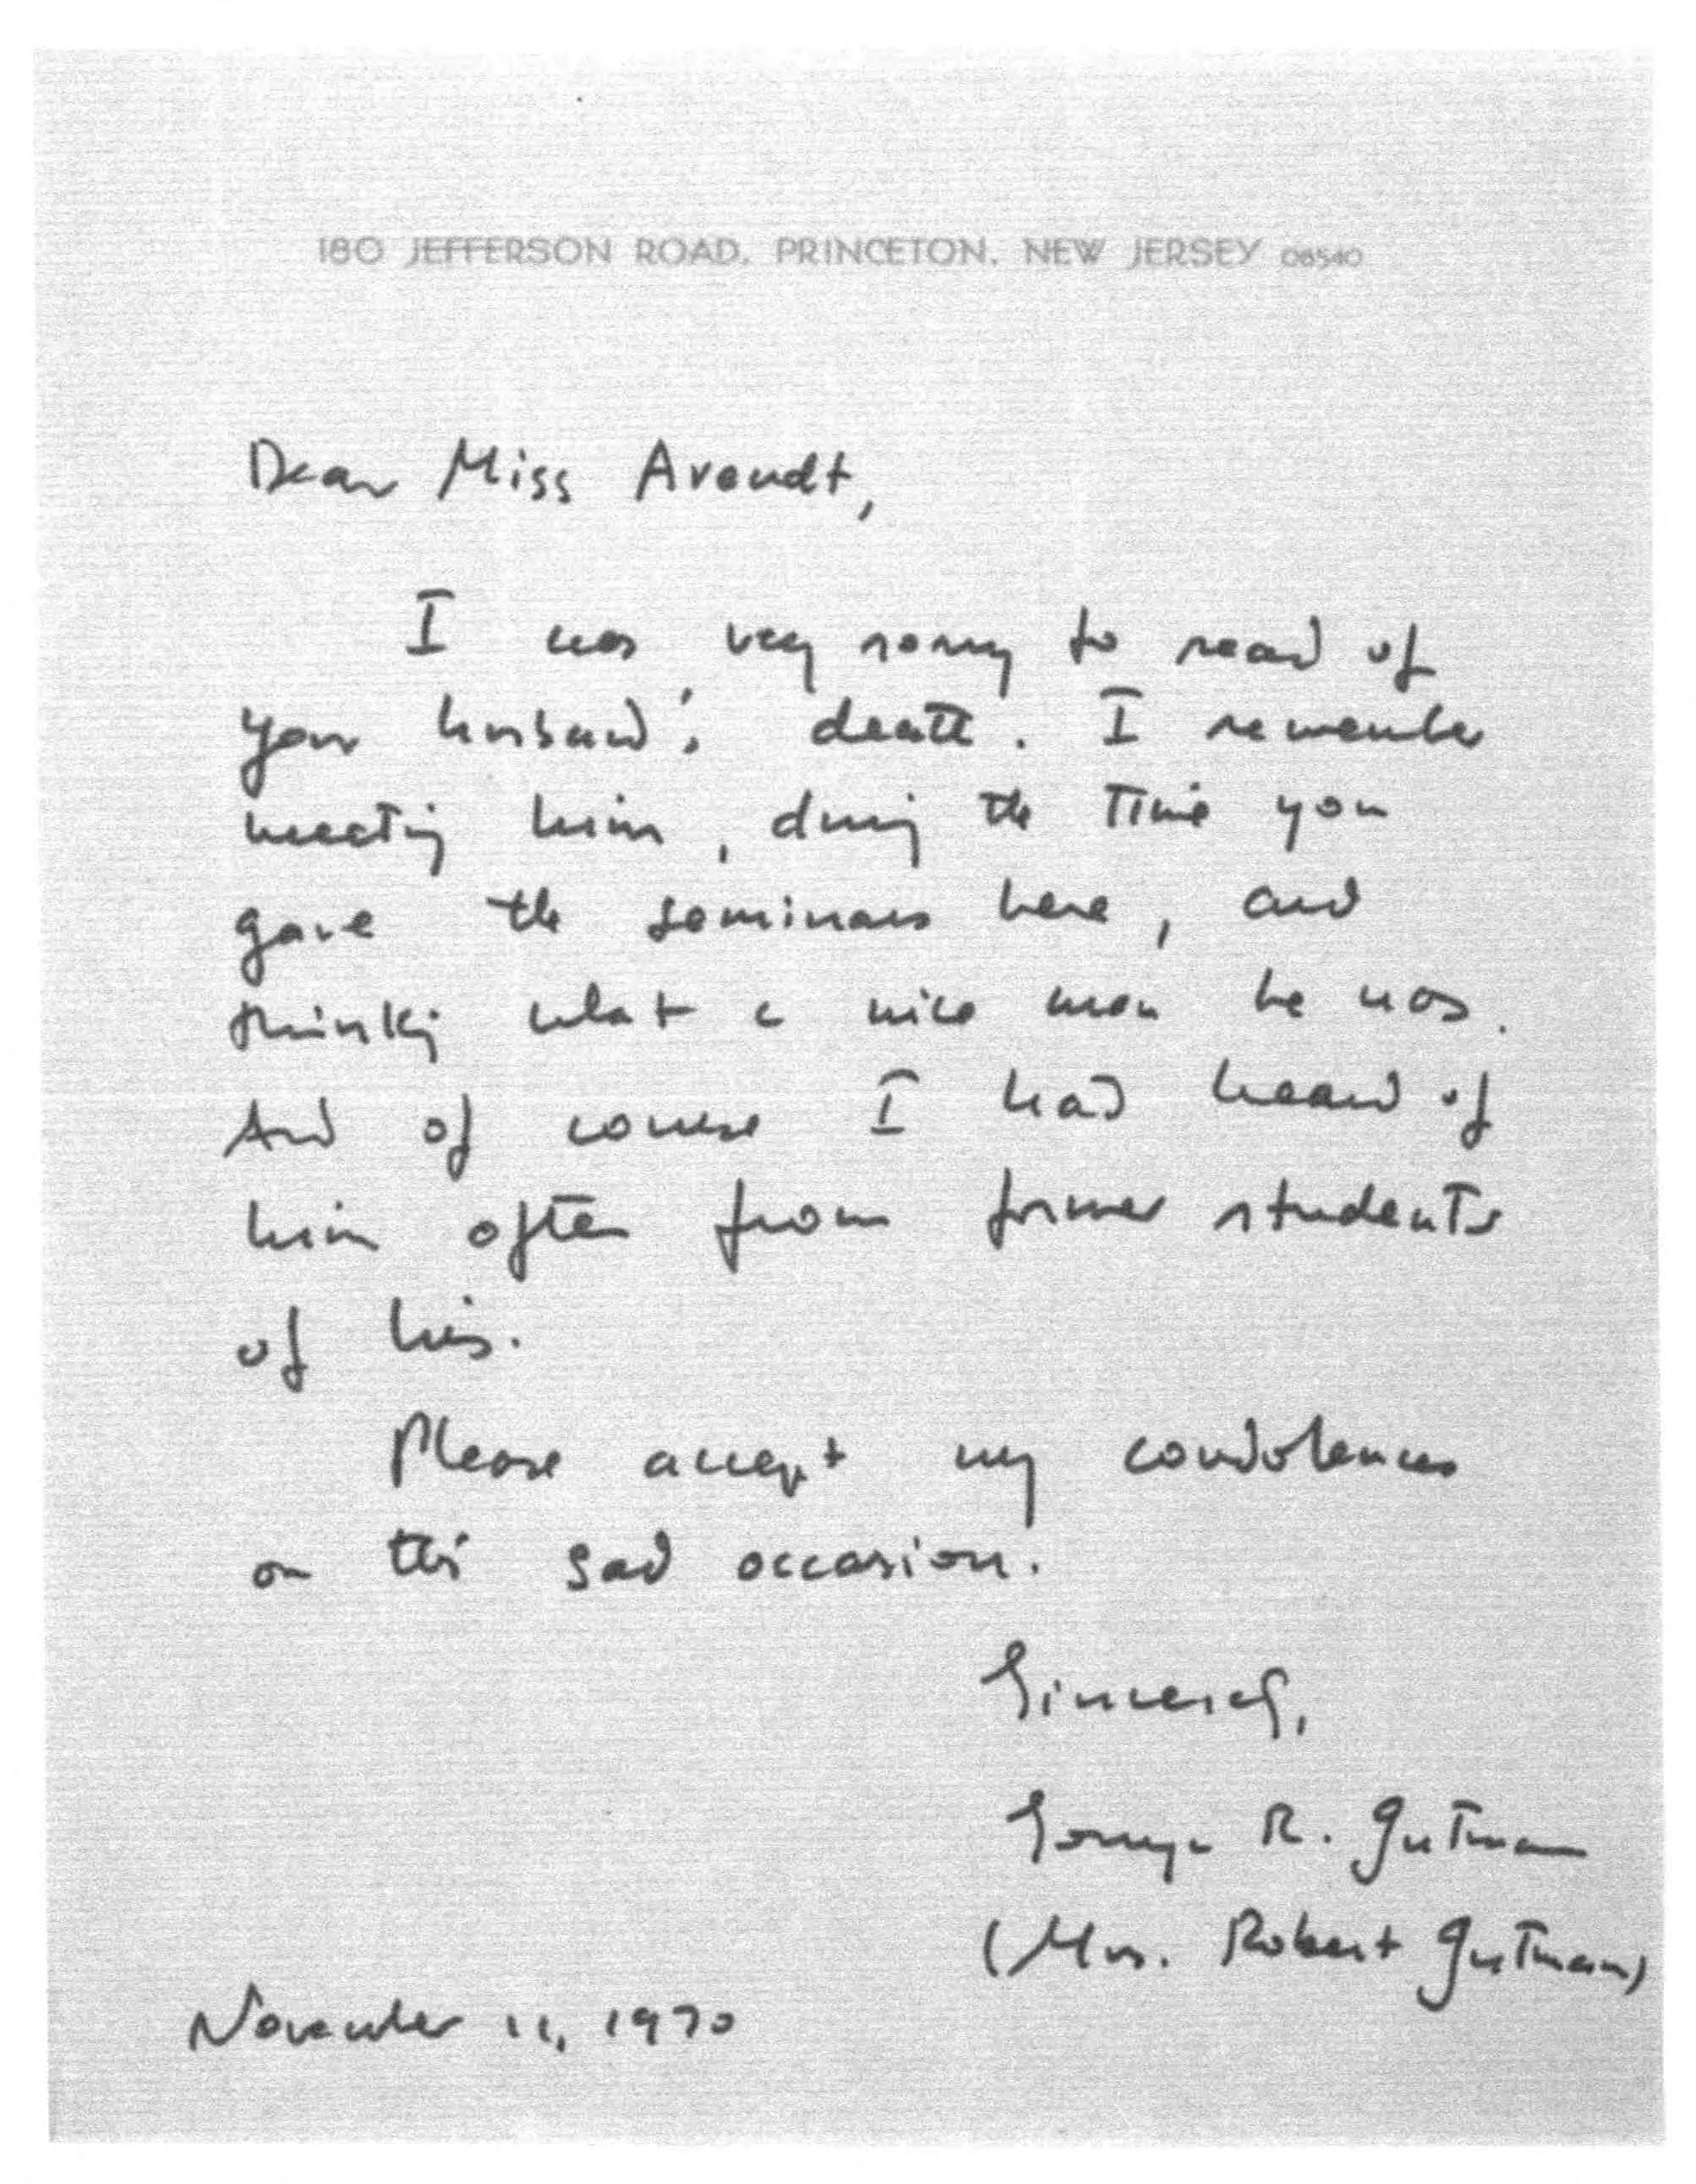 180 JEFFERSON ROAD, PRINCETON, NEW JERSEY 08540
Dear Miss Arendt,
I was very sorry to read of
your husband's death. I remember
meeting him, during the time you
gave the seminars here, and
thinking what a nice man he was.
And of course I had heard of
him often from former students
of his.
Please accept my condolences
on this sad occasion.
Sincerely,
Sonya R. Gutman
(Mrs. Robert Gutman)
November 11, 1970